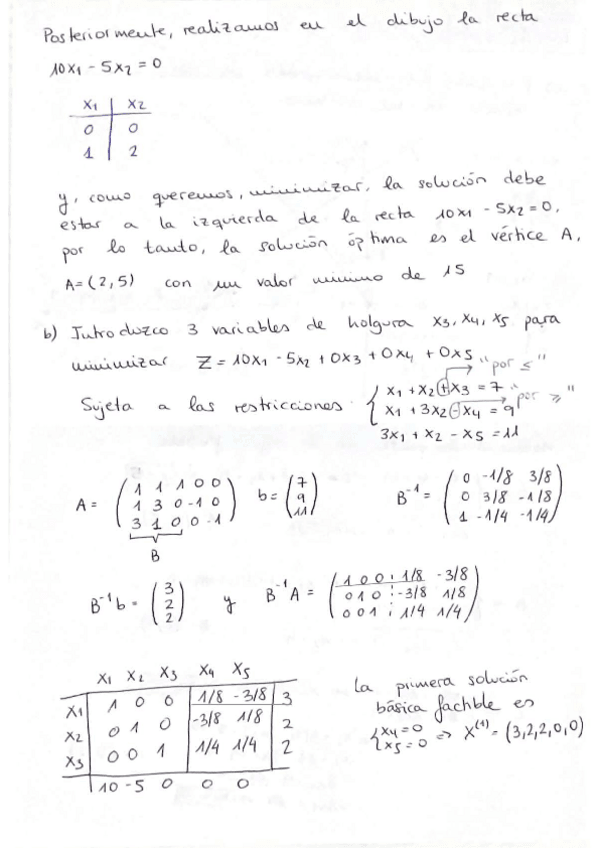 Posteriormente, realizamos en el dibujo la recta
10x1 - 5x2 = 0
x1 | x2
0 | 0
1 | 2
y, como queremos, minimizar, la solución debe
estar a la izquierda de la recta 10x1 - 5x2 = 0,
por lo tanto, la solución óptima es el vértice A,
A = (2,5) con un valor mínimo de 15
b) Introduzco 3 variables de holgura x3, x4, x5 para
minimizar Z = 10x1 - 5x2 + 0x3 + 0x4 + 0x5
"por ≤"
Sujeta a las restricciones { x1 + x2 + x3 = 7
x1 + 3x2 - x4 = 9 "por ≥"
3x1 + x2 - x5 = 11
A = ( 1 1 1 0 0
1 3 0 -1 0
3 1 0 0 -1 )
B
b = ( 7
9
11 )
B⁻¹ = ( 0 -1/8 3/8
0 3/8 -1/8
1 -1/4 -1/4 )
B⁻¹b = ( 3
2
2 )
y
B⁻¹A = ( 1 0 0 1/8 -3/8
0 1 0 -3/8 1/8
0 0 1 1/4 1/4 )
x1 x2 x3 x4 x5
x1 | 1 0 0 | 1/8 -3/8 | 3
x2 | 0 1 0 | -3/8 1/8 | 2
x3 | 0 0 1 | 1/4 1/4 | 2
10 -5 0 0 0
La primera solución
básica factible es
{ x4 = 0
x5 = 0 ⇒ X⁽¹⁾ = (3,2,2,0,0)